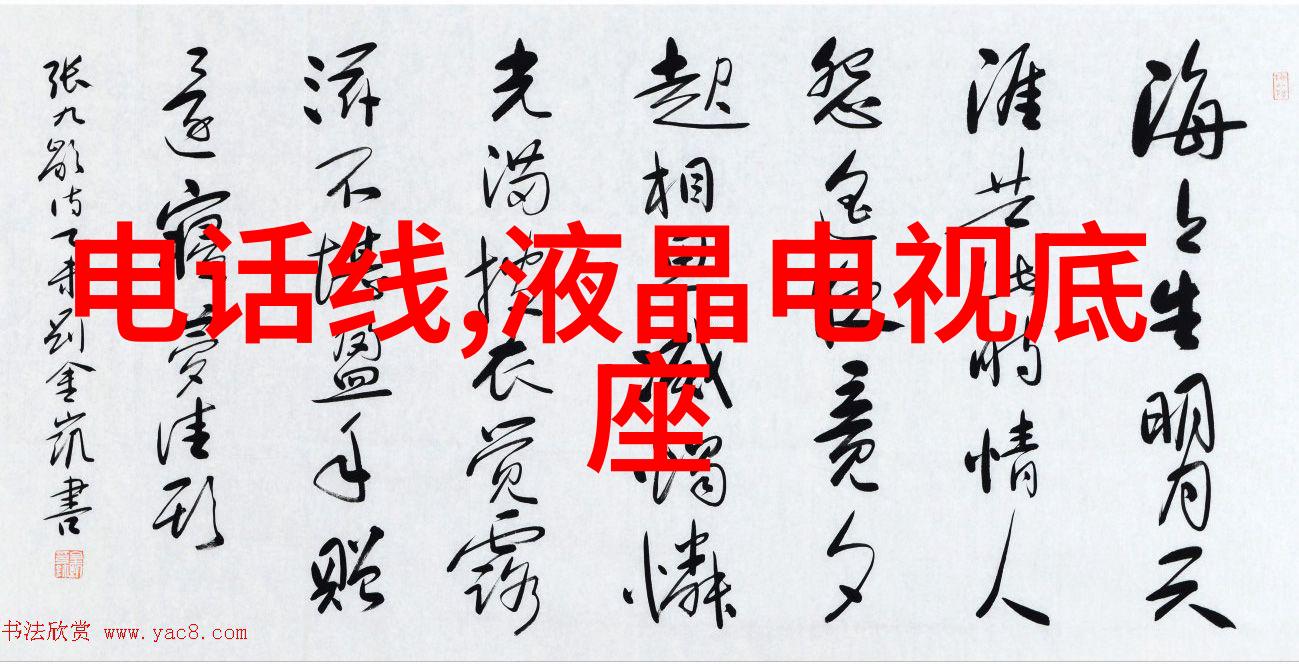 电话线,液晶电视底
座
海上生明月天
涯共此时情人
怨遥夜竟夕
起相思滅燭憐
光满披衣觉露
滋不堪盈手赠
還寝梦佳期
张九龄诗 刘金凯书
书法欣赏 www.yac8.com